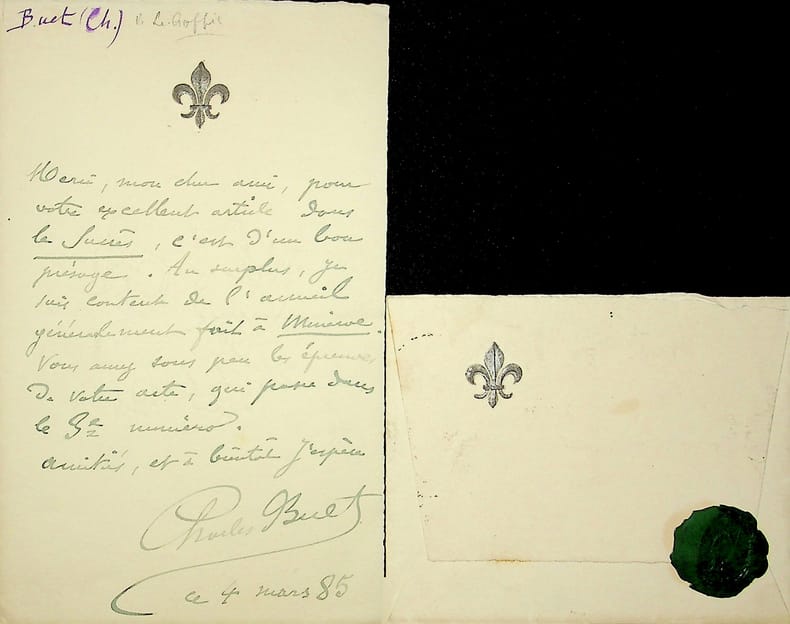 Buet (Ch.) à Le Goffic
Merci, mon cher ami, pour
votre excellent article dans
le Succès, c'est d'un bon
présage. Au surplus, je
suis content de l'accueil
généralement fait à Minerve.
Vous aurez sous peu les épreuves
de votre acte, qui passe dans
le 3e numéro.
amitiés, et à bientôt j'espère
Charles Buet
ce 4 mars 85